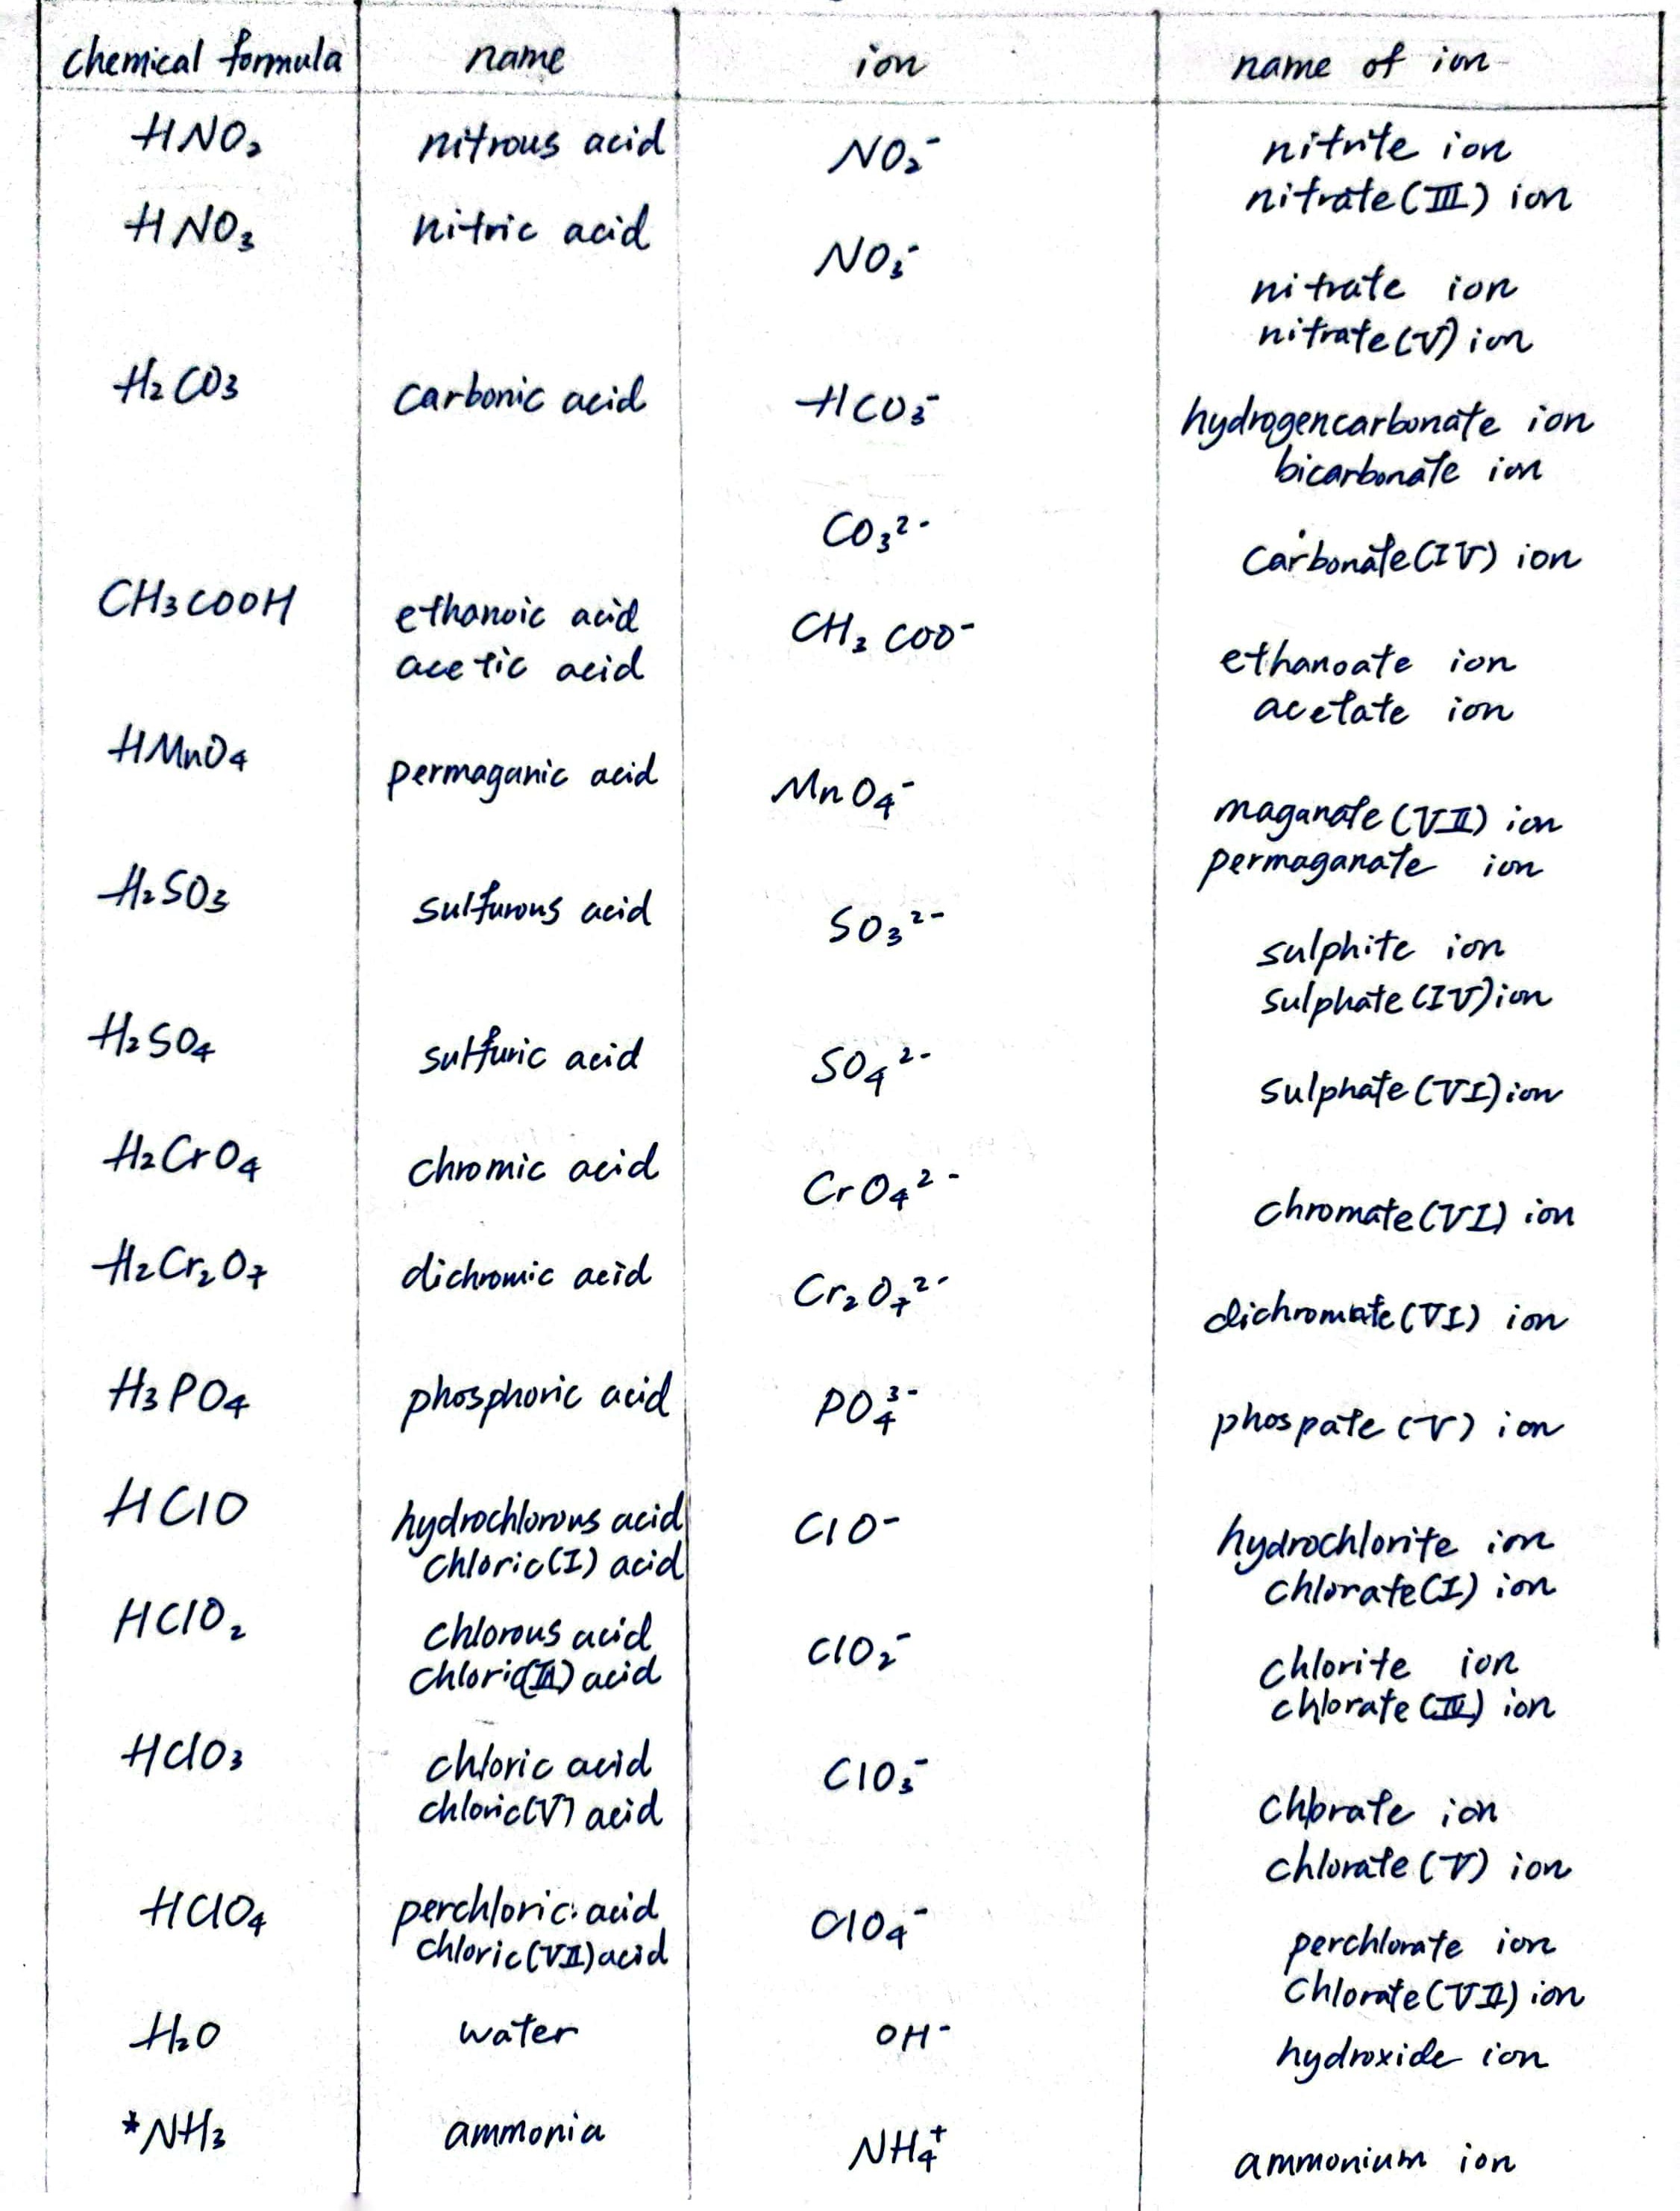 chemical formula name ion name of ion
HNO₂ nitrous acid NO₂⁻ nitrite ion
nitrate(III) ion
HNO₃ nitric acid NO₃⁻ nitrate ion
nitrate(V) ion
H₂CO₃ carbonic acid HCO₃⁻ hydrogencarbonate ion
bicarbonate ion
CO₃²⁻ carbonate(IV) ion
CH₃COOH ethanoic acid CH₃COO⁻ ethanoate ion
acetic acid acetate ion
HMnO₄ permaganic acid MnO₄⁻ maganate(VII) ion
permaganate ion
H₂SO₃ sulfurous acid SO₃²⁻ sulphite ion
sulphate(IV) ion
H₂SO₄ sulfuric acid SO₄²⁻ sulphate(VI) ion
H₂CrO₄ chromic acid CrO₄²⁻ chromate(VI) ion
H₂Cr₂O₇ dichromic acid Cr₂O₇²⁻ dichromate(VI) ion
H₃PO₄ phosphoric acid PO₄³⁻ phospate(V) ion
HClO hydrochlorous acid ClO⁻ hydrochlorite ion
chloric(I) acid chlorate(I) ion
HClO₂ chlorous acid ClO₂⁻ chlorite ion
chloric(III) acid chlorate(III) ion
HClO₃ chloric acid ClO₃⁻ chlorate ion
chloric(V) acid chlorate(V) ion
HClO₄ perchloric acid ClO₄⁻ perchlorate ion
chloric(VII) acid chlorate(VII) ion
H₂O water OH⁻ hydroxide ion
*NH₃ ammonia NH₄⁺ ammonium ion